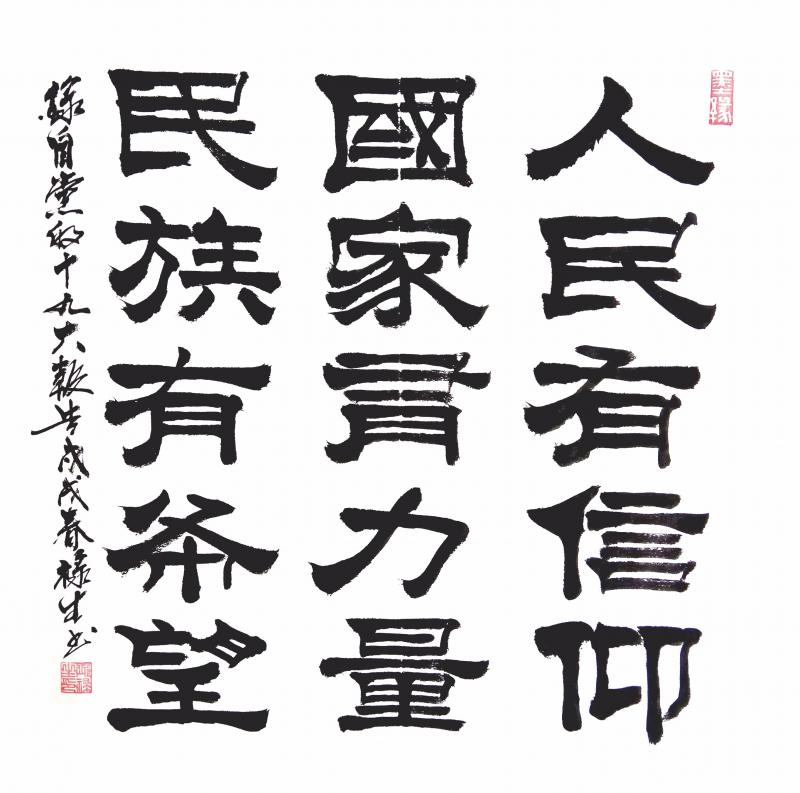 墨緣
人民有信仰
國家有力量
民族有希望
録自党的十九大報告戊戌春祿生书